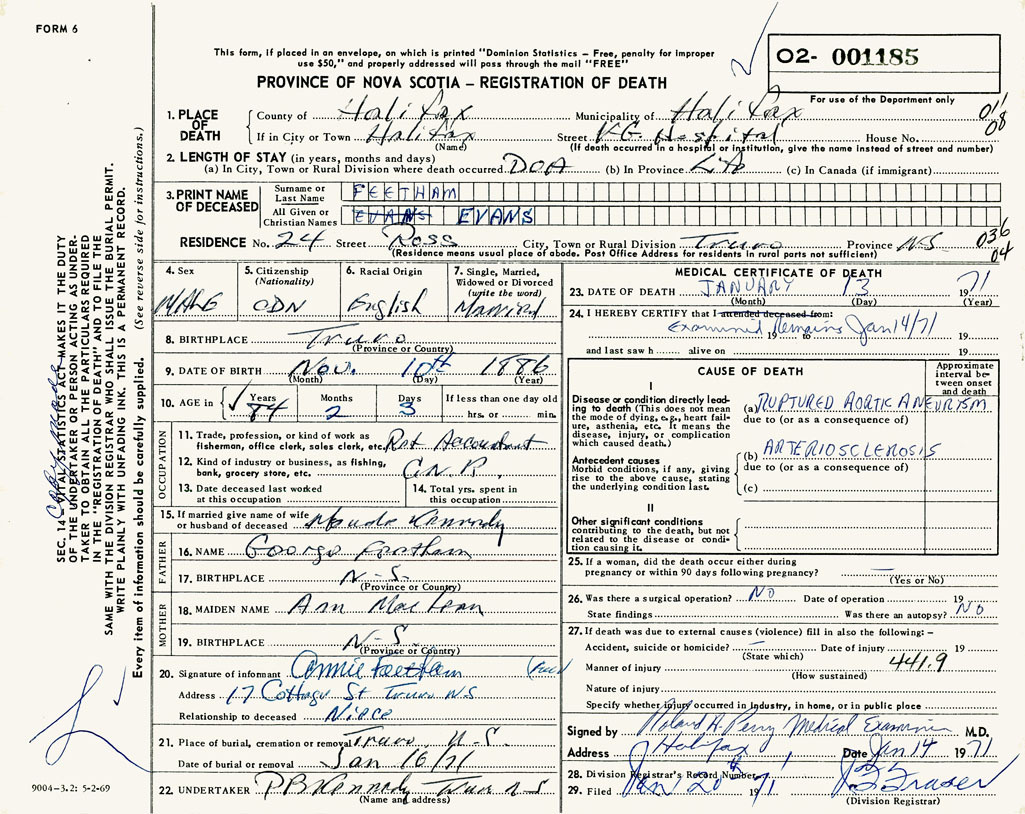 FORM 6
This form, if placed in an envelope, on which is printed "Dominion Statistics – Free, penalty for improper
use $50," and properly addressed will pass through the mail "FREE"
PROVINCE OF NOVA SCOTIA – REGISTRATION OF DEATH
O2- 001185
For use of the Department only
1. PLACE OF DEATH
County of Halifax Municipality of Halifax 01
If in City or Town Halifax Street V.G. Hospital House No. 08
(Name) (If death occurred in a hospital or institution, give the name instead of street and number)
2. LENGTH OF STAY (in years, months and days)
(a) In City, Town or Rural Division where death occurred DOA (b) In Province (c) In Canada (if immigrant)
3. PRINT NAME OF DECEASED
Surname or Last Name FEETHAM
All Given or Christian Names EVANS EVANS
RESIDENCE No. 24 Street Ross City, Town or Rural Division Truro Province N.S. 036
(Residence means usual place of abode. Post Office Address for residents in rural parts not sufficient) 04
4. Sex MALE
5. Citizenship (Nationality) CDN
6. Racial Origin English
7. Single, Married, Widowed or Divorced (write the word) Married
8. BIRTHPLACE Truro
(Province or Country)
9. DATE OF BIRTH Nov. 10th 1886
(Month) (Day) (Year)
10. AGE in Years Months Days If less than one day old
84 2 3 hrs. or min.
OCCUPATION
11. Trade, profession, or kind of work as
fisherman, office clerk, sales clerk, etc. Ret Accountant
12. Kind of industry or business, as fishing,
bank, grocery store, etc. C.N.R.
13. Date deceased last worked
at this occupation
14. Total yrs. spent in
this occupation
15. If married give name of wife
or husband of deceased Maude Kennedy
FATHER
16. NAME George Feetham
17. BIRTHPLACE N-S.
(Province or Country)
MOTHER
18. MAIDEN NAME Ann MacLean
19. BIRTHPLACE N-S.
(Province or Country)
20. Signature of informant Annie Feetham
Address 17 Cottage St Truro N.S
Relationship to deceased Niece
21. Place of burial, cremation or removal Truro N.S.
Date of burial or removal Jan 16/71
22. UNDERTAKER P B Kennedy Truro N S
(Name and address)
MEDICAL CERTIFICATE OF DEATH
23. DATE OF DEATH JANUARY 13 1971
(Month) (Day) (Year)
24. I HEREBY CERTIFY that I attended deceased from:
Examined Remains Jan 14/71 19 to 19
and last saw h alive on 19
CAUSE OF DEATH
Approximate interval between onset and death
I
Disease or condition directly leading to death (This does not mean the mode of dying, e.g., heart failure, asthenia, etc. It means the disease, injury, or complication which caused death.)
(a) RUPTURED AORTIC ANEURYISM
due to (or as a consequence of)
Antecedent causes
Morbid conditions, if any, giving rise to the above cause, stating the underlying condition last.
(b) ARTERIOSCLEROSIS
due to (or as a consequence of)
(c)
II
Other significant conditions
contributing to the death, but not related to the disease or condition causing it.
25. If a woman, did the death occur either during
pregnancy or within 90 days following pregnancy? —
(Yes or No)
26. Was there a surgical operation? NO Date of operation 19
State findings Was there an autopsy? NO
27. If death was due to external causes (violence) fill in also the following: –
Accident, suicide or homicide? Date of injury 19
(State which)
Manner of injury 441.9
(How sustained)
Nature of injury
Specify whether injury occurred in Industry, in home, or in public place
Signed by Roland A. Perry Medical Examiner M.D.
Address Halifax Date Jan 14 1971
28. Division Registrar's Record Number
29. Filed Jan 20 1971 Fraser
(Division Registrar)
SEC. 14 VITAL STATISTICS ACT MAKES IT THE DUTY
OF THE UNDERTAKER OR PERSON ACTING AS UNDER-
TAKER TO OBTAIN ALL THE PARTICULARS REQUIRED
IN THE "REGISTRATION OF DEATH" AND TO FILE THE
SAME WITH THE DIVISION REGISTRAR WHO SHALL ISSUE THE BURIAL PERMIT.
WRITE PLAINLY WITH UNFADING INK. THIS IS A PERMANENT RECORD.
Every item of information should be carefully supplied. (See reverse side for instructions.)
9004-3.2: 5-2-69